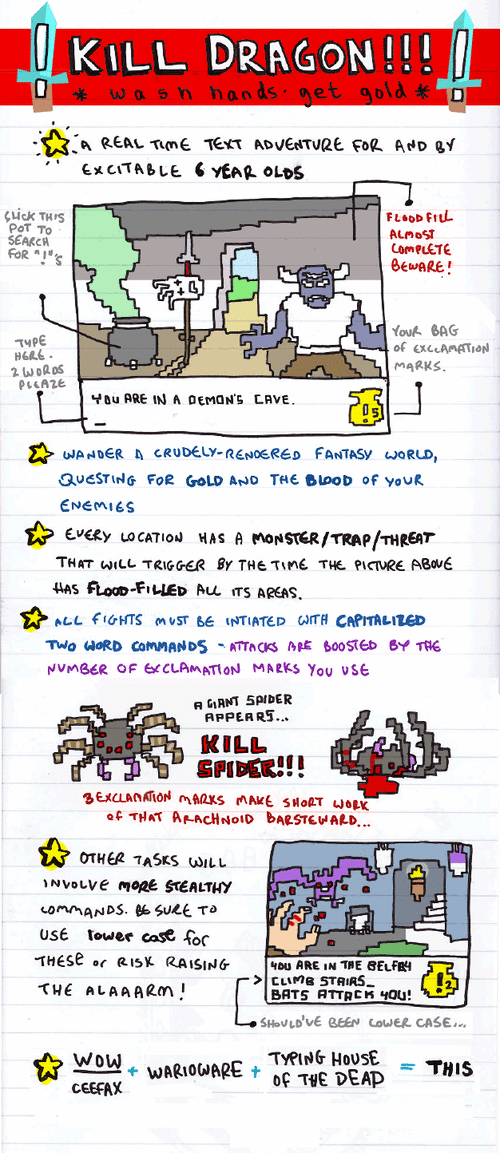 ! KILL DRAGON!!! !
* wash hands. get gold *
A REAL TIME TEXT ADVENTURE FOR AND BY
EXCITABLE 6 YEAR OLDS
CLICK THIS
POT TO
SEARCH
FOR "!"'s
FLOOD FILL
ALMOST
COMPLETE
BEWARE!
TYPE
HERE.
2 WORDS
PLEAZE
YOUR BAG
OF EXCLAMATION
MARKS.
YOU ARE IN A DEMON'S CAVE.
_
! 5
WANDER A CRUDELY-RENDERED FANTASY WORLD,
QUESTING FOR GOLD AND THE BLOOD OF YOUR
ENEMIES
EVERY LOCATION HAS A MONSTER/TRAP/THREAT
THAT WILL TRIGGER BY THE TIME THE PICTURE ABOVE
HAS FLOOD-FILLED ALL ITS AREAS.
ALL FIGHTS MUST BE INTIATED WITH CAPITALIZED
TWO WORD COMMANDS - ATTACKS ARE BOOSTED BY THE
NUMBER OF EXCLAMATION MARKS YOU USE
A GIANT SPIDER
APPEARS...
KILL
SPIDER!!!
3 EXCLAMATION MARKS MAKE SHORT WORK
OF THAT ARACHNOID BARSTEWARD...
OTHER TASKS WILL
INVOLVE MORE STEALTHY
COMMANDS. BE SURE TO
USE lower case for
THESE or RISK RAISING
THE ALAAARM!
YOU ARE IN THE BELFRY
CLIMB STAIRS_
BATS ATTACK YOU!
! 2
SHOULD'VE BEEN LOWER CASE...
WOW
CEEFAX
+ WARIOWARE +
TYPING HOUSE
OF THE DEAD
= THIS